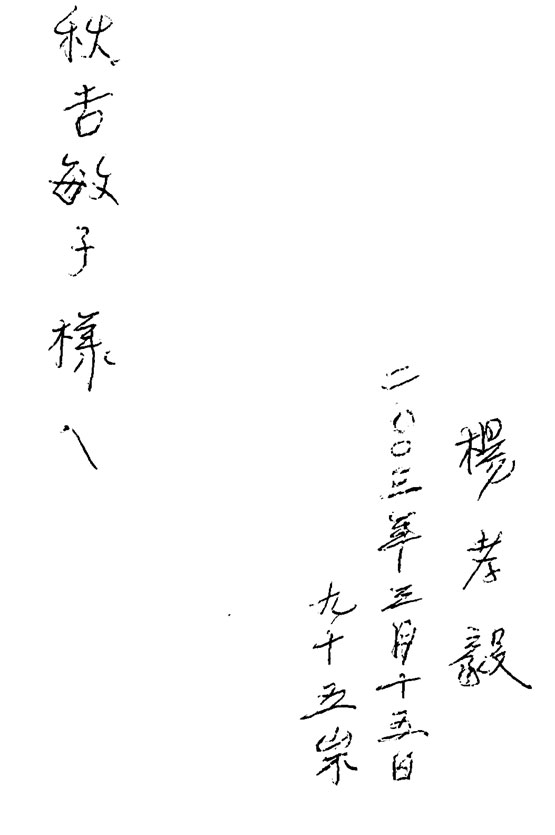 楊孝毅
二〇〇三年三月十五日
九十五歳
秋吉敏子様へ